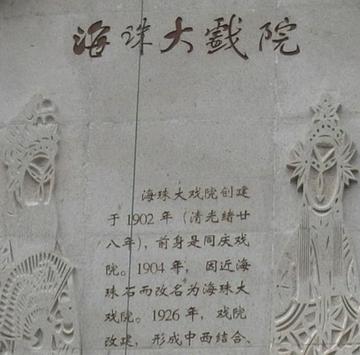 海珠大戲院
海珠大戏院创建
于1902年（清光绪廿
八年），前身是同庆戏
院。1904年，因近海
珠石而改名为海珠大
戏院。1926年，戏院
改建，形成中西结合、